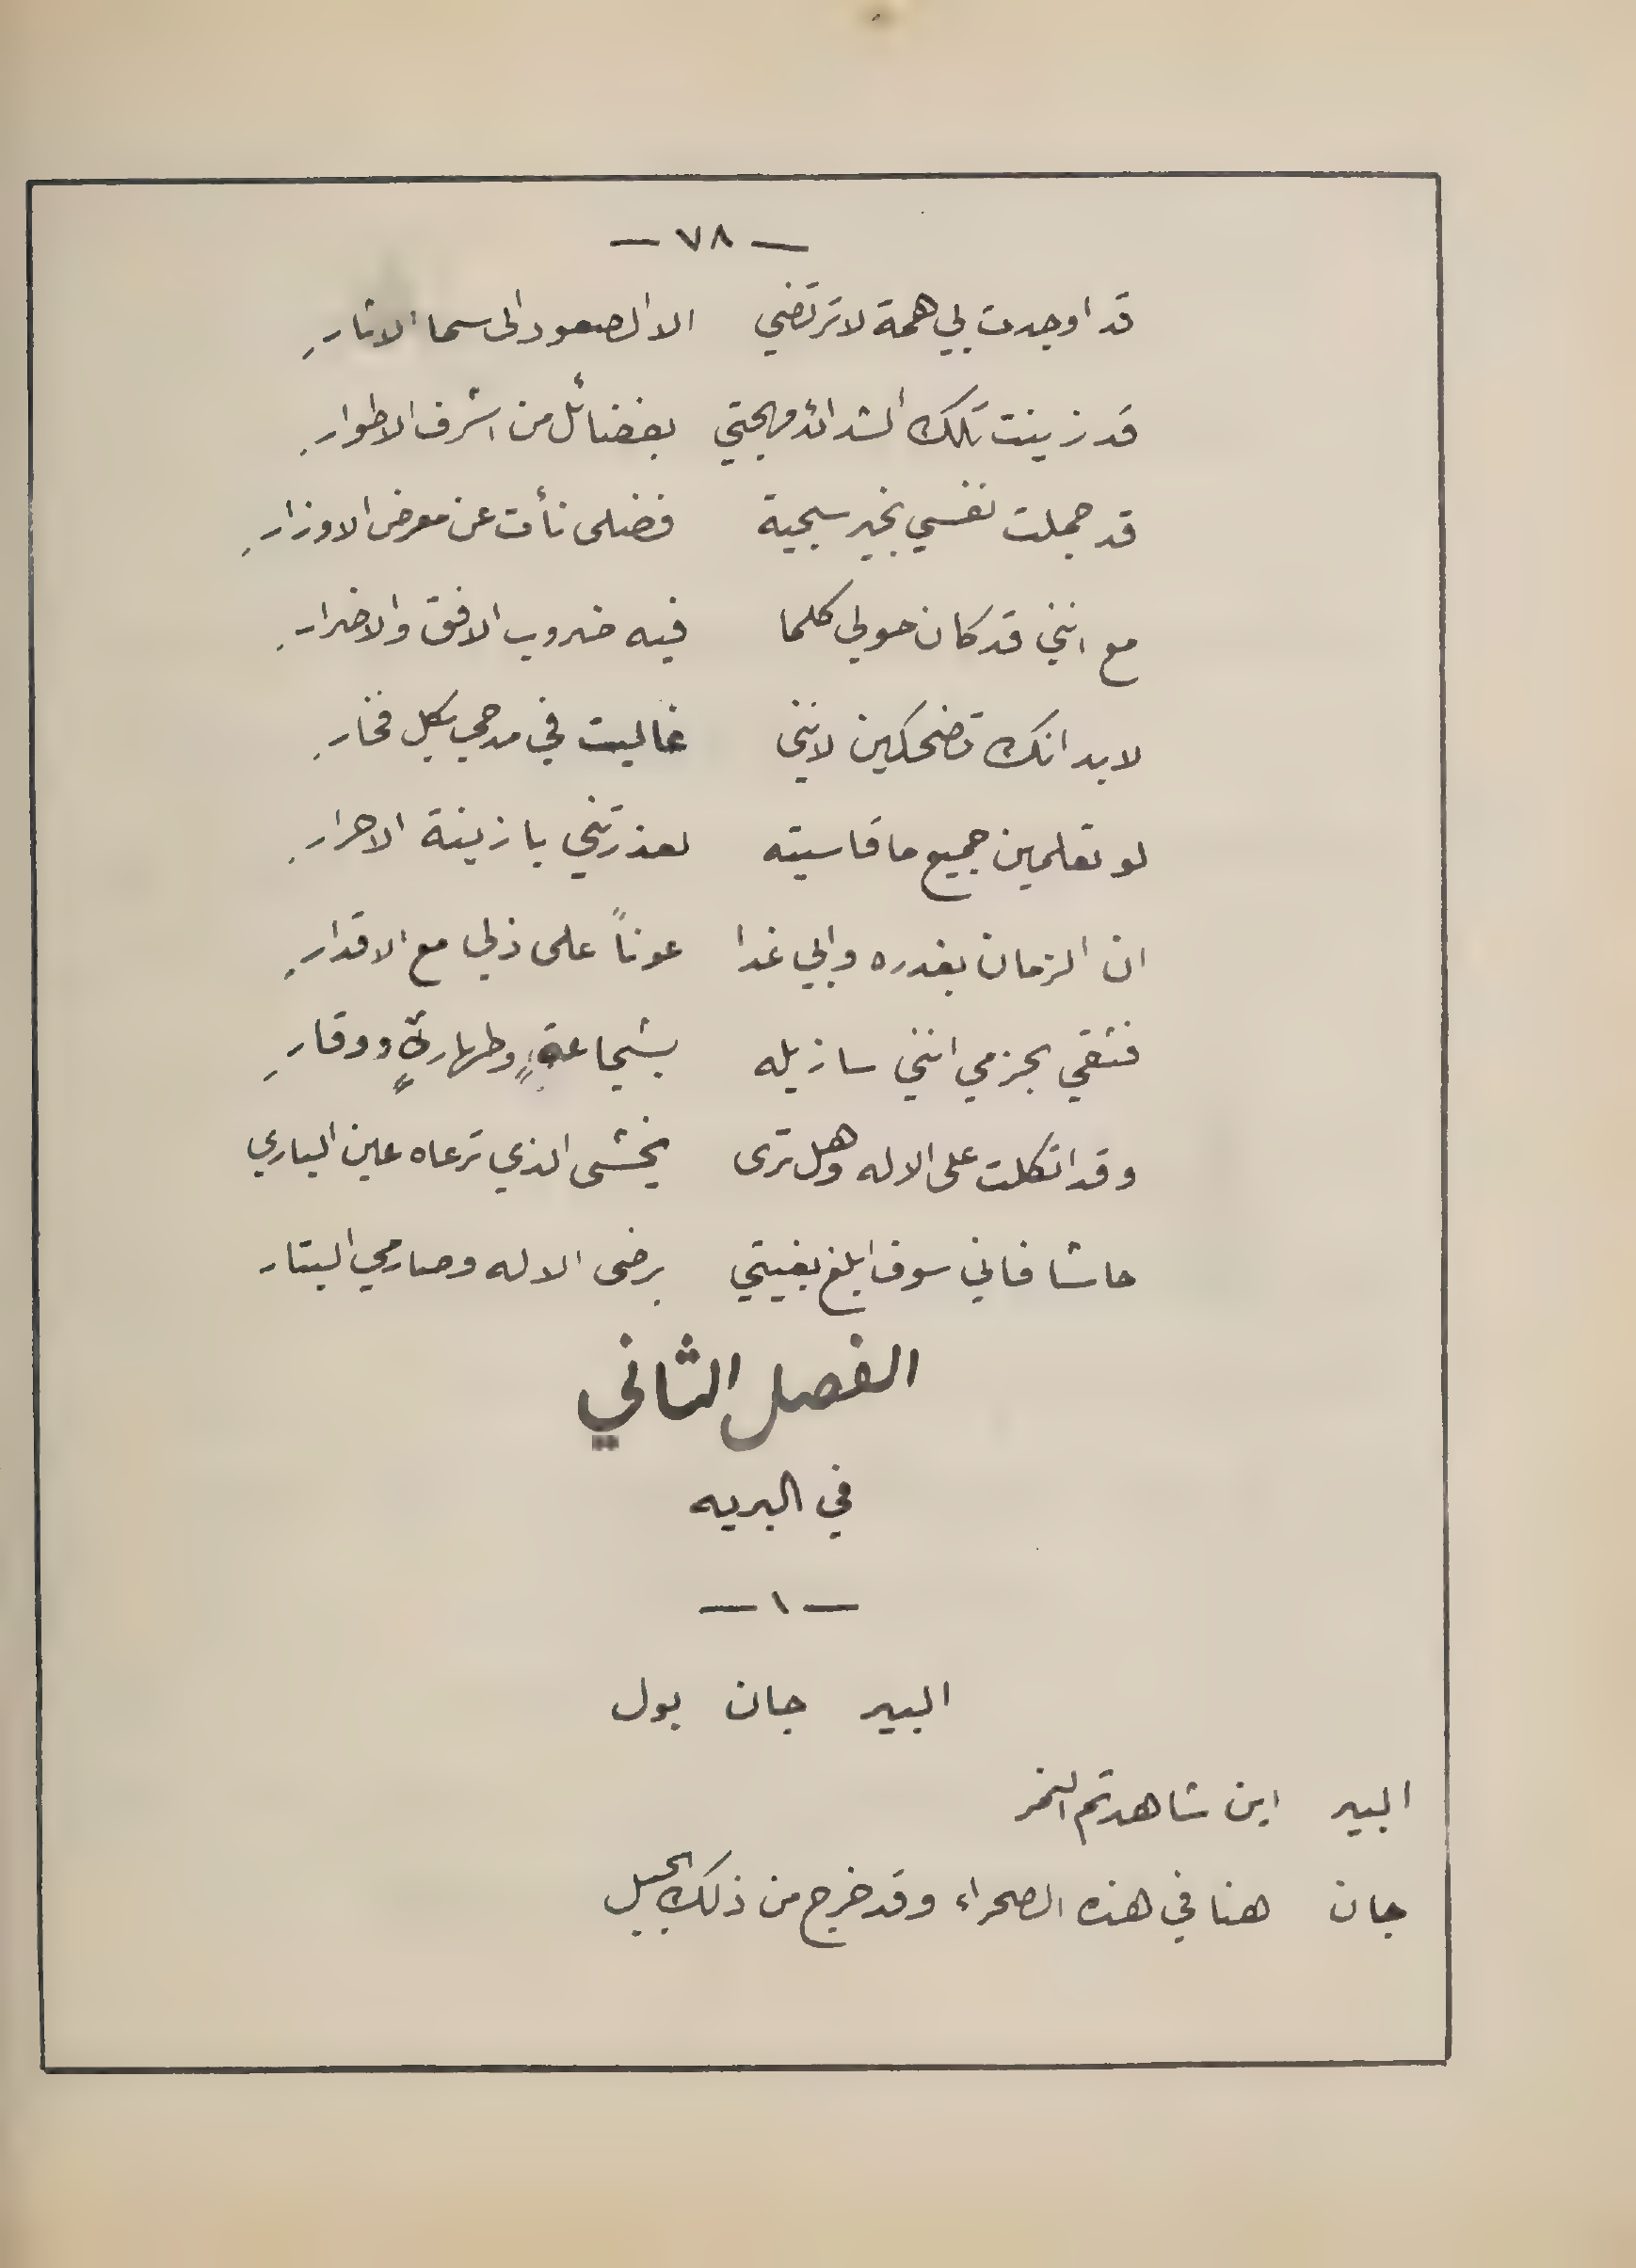 — ٧٨ —
قد اوجدت بي همة لا ترتضي الا الصعود الى سما الاثارِ
قد زينت تلك الشدائد مهجتي بفضائل من اشرف الاطوارِ
قد جملت نفسي بخير سجية فضلى نأت عن معرض الاوزارِ
مع انني قد كان حولي كلما فيه ضروب الافق والاضرارِ
لا بد انك تضحكين لانني غاليت في مدحي بكل فخارِ
لو تعلمين جميع ما قاسيته لعذرتني يا زينة الاحرارِ
ان الزمان بغدره وابي غدا عوناً على ذلي مع الاقدارِ
فثقي بجزمي انني سازيله بشجاعةٍ وطهارةٍ ووقارِ
وقد اتكلت على الاله وهل ترى يخشى الذي ترعاه عين الباري
حاشا فاني سوف ابلغ بغيتي برضى الاله وصارمي البتار
الفصل الثاني
في البريه
— ١ —
البير جان بول
البير اين شاهدتم النمر
جان هنا في هذه الصحراء وقد خرج من ذلك الجبل